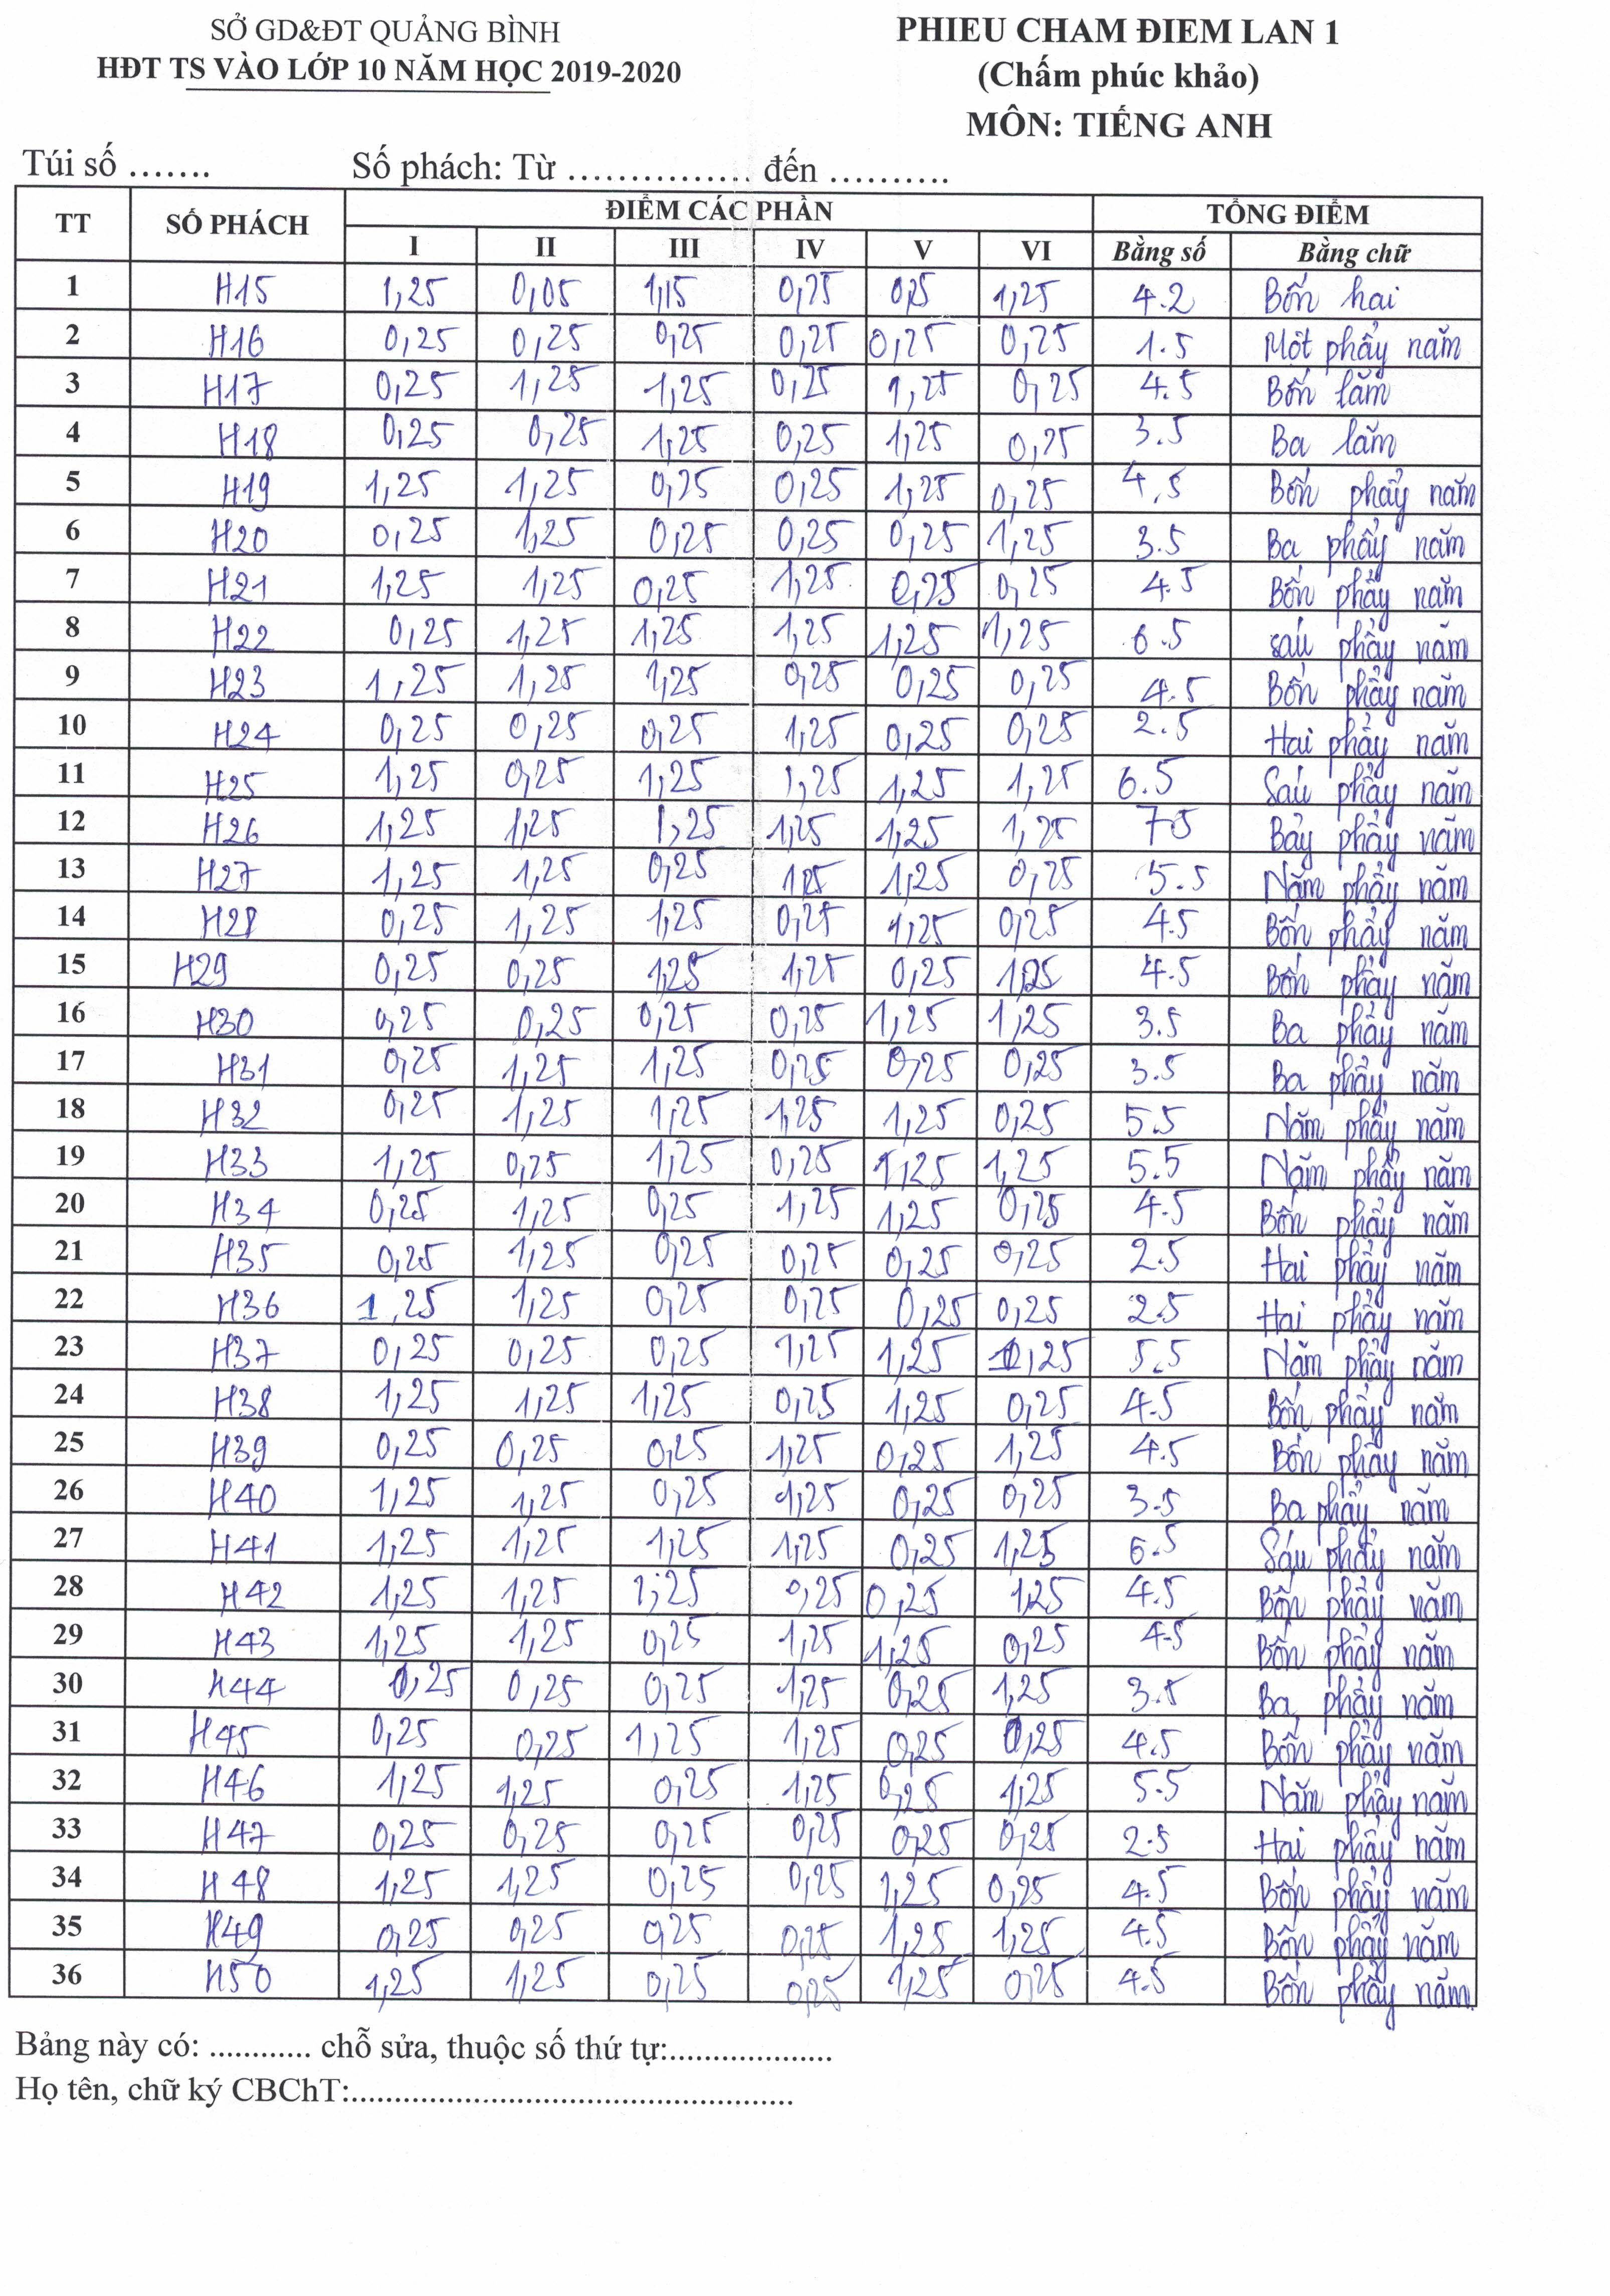 SỞ GD&ĐT QUẢNG BÌNH
HĐT TS VÀO LỚP 10 NĂM HỌC 2019-2020
PHIEU CHAM ĐIEM LAN 1
(Chấm phúc khảo)
MÔN: TIẾNG ANH
Túi số ....... Số phách: Từ ............... đến ..........
TT SỐ PHÁCH ĐIỂM CÁC PHẦN TỔNG ĐIỂM
I II III IV V VI Bằng số Bằng chữ
1 H15 1,25 0,05 1,15 0,25 0,25 1,25 4.2 Bốn hai
2 H16 0,25 0,25 0,25 0,25 0,25 0,25 1.5 Một phẩy năm
3 H17 0,25 1,25 1,25 0,25 1,25 0,25 4.5 Bốn lăm
4 H18 0,25 0,25 1,25 0,25 1,25 0,25 3.5 Ba lăm
5 H19 1,25 1,25 0,25 0,25 1,25 0,25 4.5 Bốn phẩy năm
6 H20 0,25 1,25 0,25 0,25 0,25 1,25 3.5 Ba phẩy năm
7 H21 1,25 1,25 0,25 1,25 0,25 0,25 4.5 Bốn phẩy năm
8 H22 0,25 1,25 1,25 1,25 1,25 1,25 6.5 sáu phẩy năm
9 H23 1,25 1,25 1,25 0,25 0,25 0,25 4.5 Bốn phẩy năm
10 H24 0,25 0,25 0,25 1,25 0,25 0,25 2.5 Hai phẩy năm
11 H25 1,25 0,25 1,25 1,25 1,25 1,25 6.5 Sáu phẩy năm
12 H26 1,25 1,25 1,25 1,25 1,25 1,25 7.5 Bảy phẩy năm
13 H27 1,25 1,25 0,25 1,25 1,25 0,25 5.5 Năm phẩy năm
14 H28 0,25 1,25 1,25 0,25 1,25 0,25 4.5 Bốn phẩy năm
15 H29 0,25 0,25 1,25 1,25 0,25 1,25 4.5 Bốn phẩy năm
16 H30 0,25 0,25 0,25 0,25 1,25 1,25 3.5 Ba phẩy năm
17 H31 0,25 1,25 1,25 0,25 0,25 0,25 3.5 Ba phẩy năm
18 H32 0,25 1,25 1,25 1,25 1,25 0,25 5.5 Năm phẩy năm
19 H33 1,25 0,25 1,25 0,25 1,25 1,25 5.5 Năm phẩy năm
20 H34 0,25 1,25 0,25 1,25 1,25 0,25 4.5 Bốn phẩy năm
21 H35 0,25 1,25 0,25 0,25 0,25 0,25 2.5 Hai phẩy năm
22 H36 1,25 1,25 0,25 0,25 0,25 0,25 2.5 Hai phẩy năm
23 H37 0,25 0,25 0,25 1,25 1,25 1,25 5.5 Năm phẩy năm
24 H38 1,25 1,25 1,25 0,25 1,25 0,25 4.5 Bốn phẩy năm
25 H39 0,25 0,25 0,25 1,25 0,25 1,25 4.5 Bốn phẩy năm
26 H40 1,25 1,25 0,25 1,25 0,25 0,25 3.5 Ba phẩy năm
27 H41 1,25 1,25 1,25 1,25 0,25 1,25 6.5 Sáu phẩy năm
28 H42 1,25 1,25 1,25 0,25 0,25 1,25 4.5 Bốn phẩy năm
29 H43 1,25 1,25 0,25 1,25 1,25 0,25 4.5 Bốn phẩy năm
30 H44 0,25 0,25 0,25 1,25 0,25 1,25 3.5 Ba phẩy năm
31 H45 0,25 0,25 1,25 1,25 0,25 0,25 4.5 Bốn phẩy năm
32 H46 1,25 1,25 0,25 1,25 0,25 1,25 5.5 Năm phẩy năm
33 H47 0,25 0,25 0,25 0,25 0,25 0,25 2.5 Hai phẩy năm
34 H48 1,25 1,25 0,25 0,25 1,25 0,25 4.5 Bốn phẩy năm
35 H49 0,25 0,25 0,25 0,25 1,25 1,25 4.5 Bốn phẩy năm
36 H50 1,25 1,25 0,25 0,25 1,25 0,25 4.5 Bốn phẩy năm
Bảng này có: ............ chỗ sửa, thuộc số thứ tự:....................
Họ tên, chữ ký CBChT:......................................................